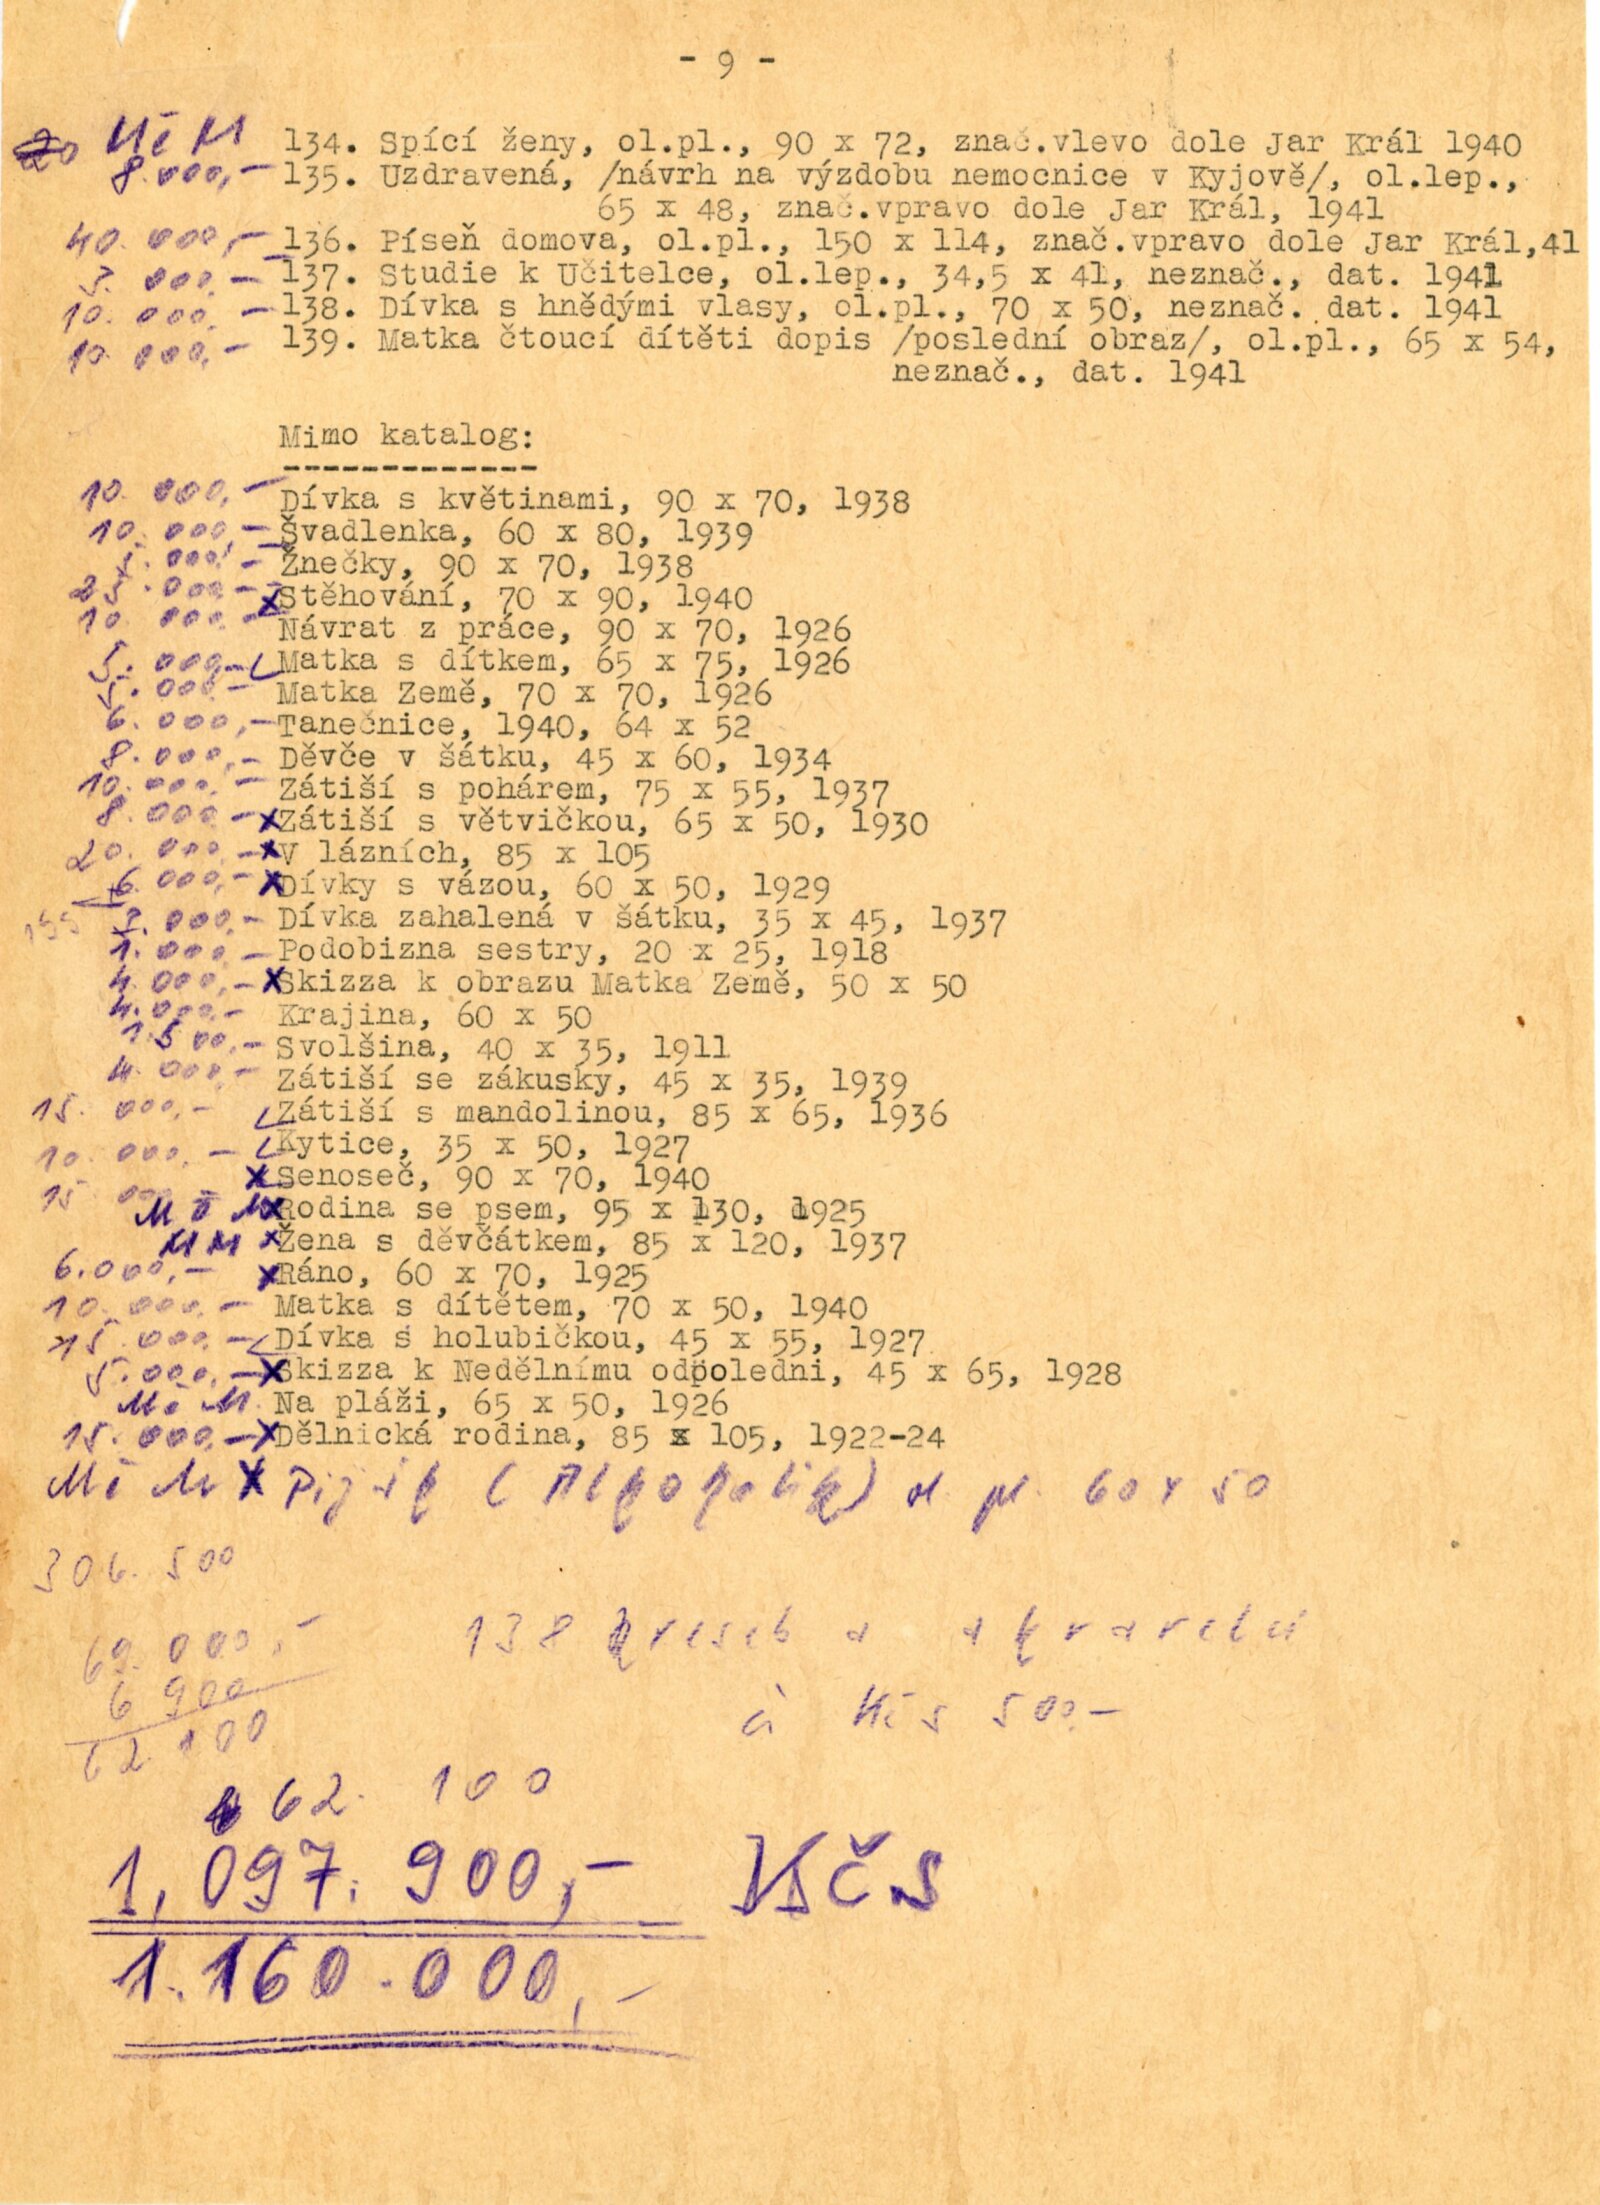 - 9 -
MěM 134. Spící ženy, ol.pl., 90 x 72, znač.vlevo dole Jar Král 1940
8.000,- 135. Uzdravená, /návrh na výzdobu nemocnice v Kyjově/, ol.lep.,
65 x 48, znač.vpravo dole Jar Král, 1941
40.000,- 136. Píseň domova, ol.pl., 150 x 114, znač.vpravo dole Jar Král,41
3.000,- 137. Studie k Učitelce, ol.lep., 34,5 x 41, neznač., dat. 1941
10.000,- 138. Dívka s hnědými vlasy, ol.pl., 70 x 50, neznač. dat. 1941
10.000,- 139. Matka čtoucí dítěti dopis /poslední obraz/, ol.pl., 65 x 54,
neznač., dat. 1941
Mimo katalog:
-------------
10.000,- Dívka s květinami, 90 x 70, 1938
10.000,- Švadlenka, 60 x 80, 1939
Žnečky, 90 x 70, 1938
x Stěhování, 70 x 90, 1940
10.000,- Návrat z práce, 90 x 70, 1926
5.000,- Matka s dítkem, 65 x 75, 1926
5.000,- Matka Země, 70 x 70, 1926
6.000,- Tanečnice, 1940, 64 x 52
8.000,- Děvče v šátku, 45 x 60, 1934
10.000,- Zátiší s pohárem, 75 x 55, 1937
8.000,- x Zátiší s větvičkou, 65 x 50, 1930
20.000,- x V lázních, 85 x 105
6.000,- x Dívky s vázou, 60 x 50, 1929
Dívka zahalená v šátku, 35 x 45, 1937
1.000,- Podobizna sestry, 20 x 25, 1918
4.000,- x Skizza k obrazu Matka Země, 50 x 50
4.000,- Krajina, 60 x 50
1.500,- Svolšina, 40 x 35, 1911
4.000,- Zátiší se zákusky, 45 x 35, 1939
15.000,- Zátiší s mandolinou, 85 x 65, 1936
10.000,- Kytice, 35 x 50, 1927
15.000 x Senoseč, 90 x 70, 1940
MěM x Rodina se psem, 95 x 130, 1925
MM x Žena s děvčátkem, 85 x 120, 1937
6.000,- x Ráno, 60 x 70, 1925
10.000,- Matka s dítětem, 70 x 50, 1940
15.000,- Dívka s holubičkou, 45 x 55, 1927
5.000,- x Skizza k Nedělnímu odpoledni, 45 x 65, 1928
MěM Na pláži, 65 x 50, 1926
15.000,- x Dělnická rodina, 85 x 105, 1922-24
MěM x Piják (Alkoholik) ol pl. 60 x 50
306.500
69.000,-
138 kreseb a akvarelů
6 900
à Kčs 500,-
62 100
62.100
1,097.900,- Kčs
1.160.000,-